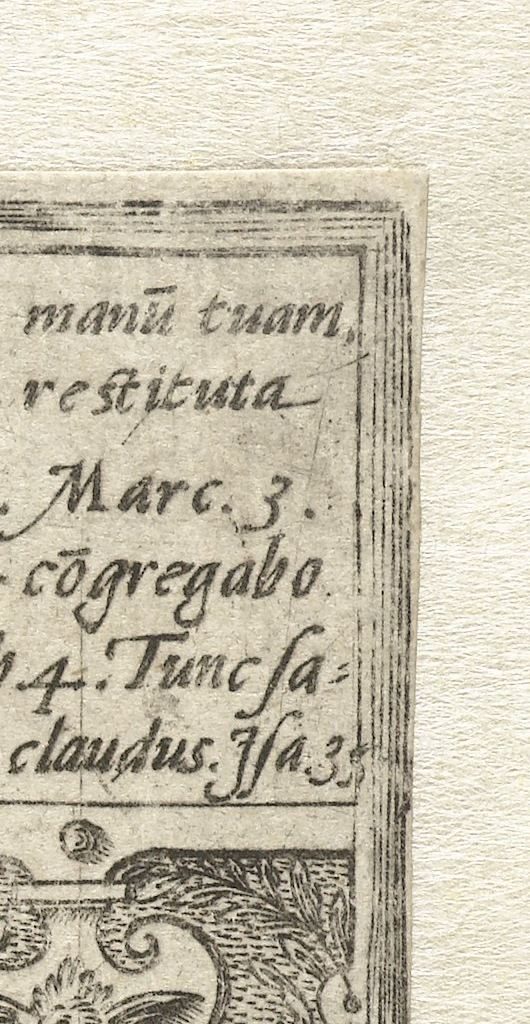 manū tuam,
restituta
. Marc. 3.
cōgregabo
4. Tunc ſa=
claudus. Jſa. 35